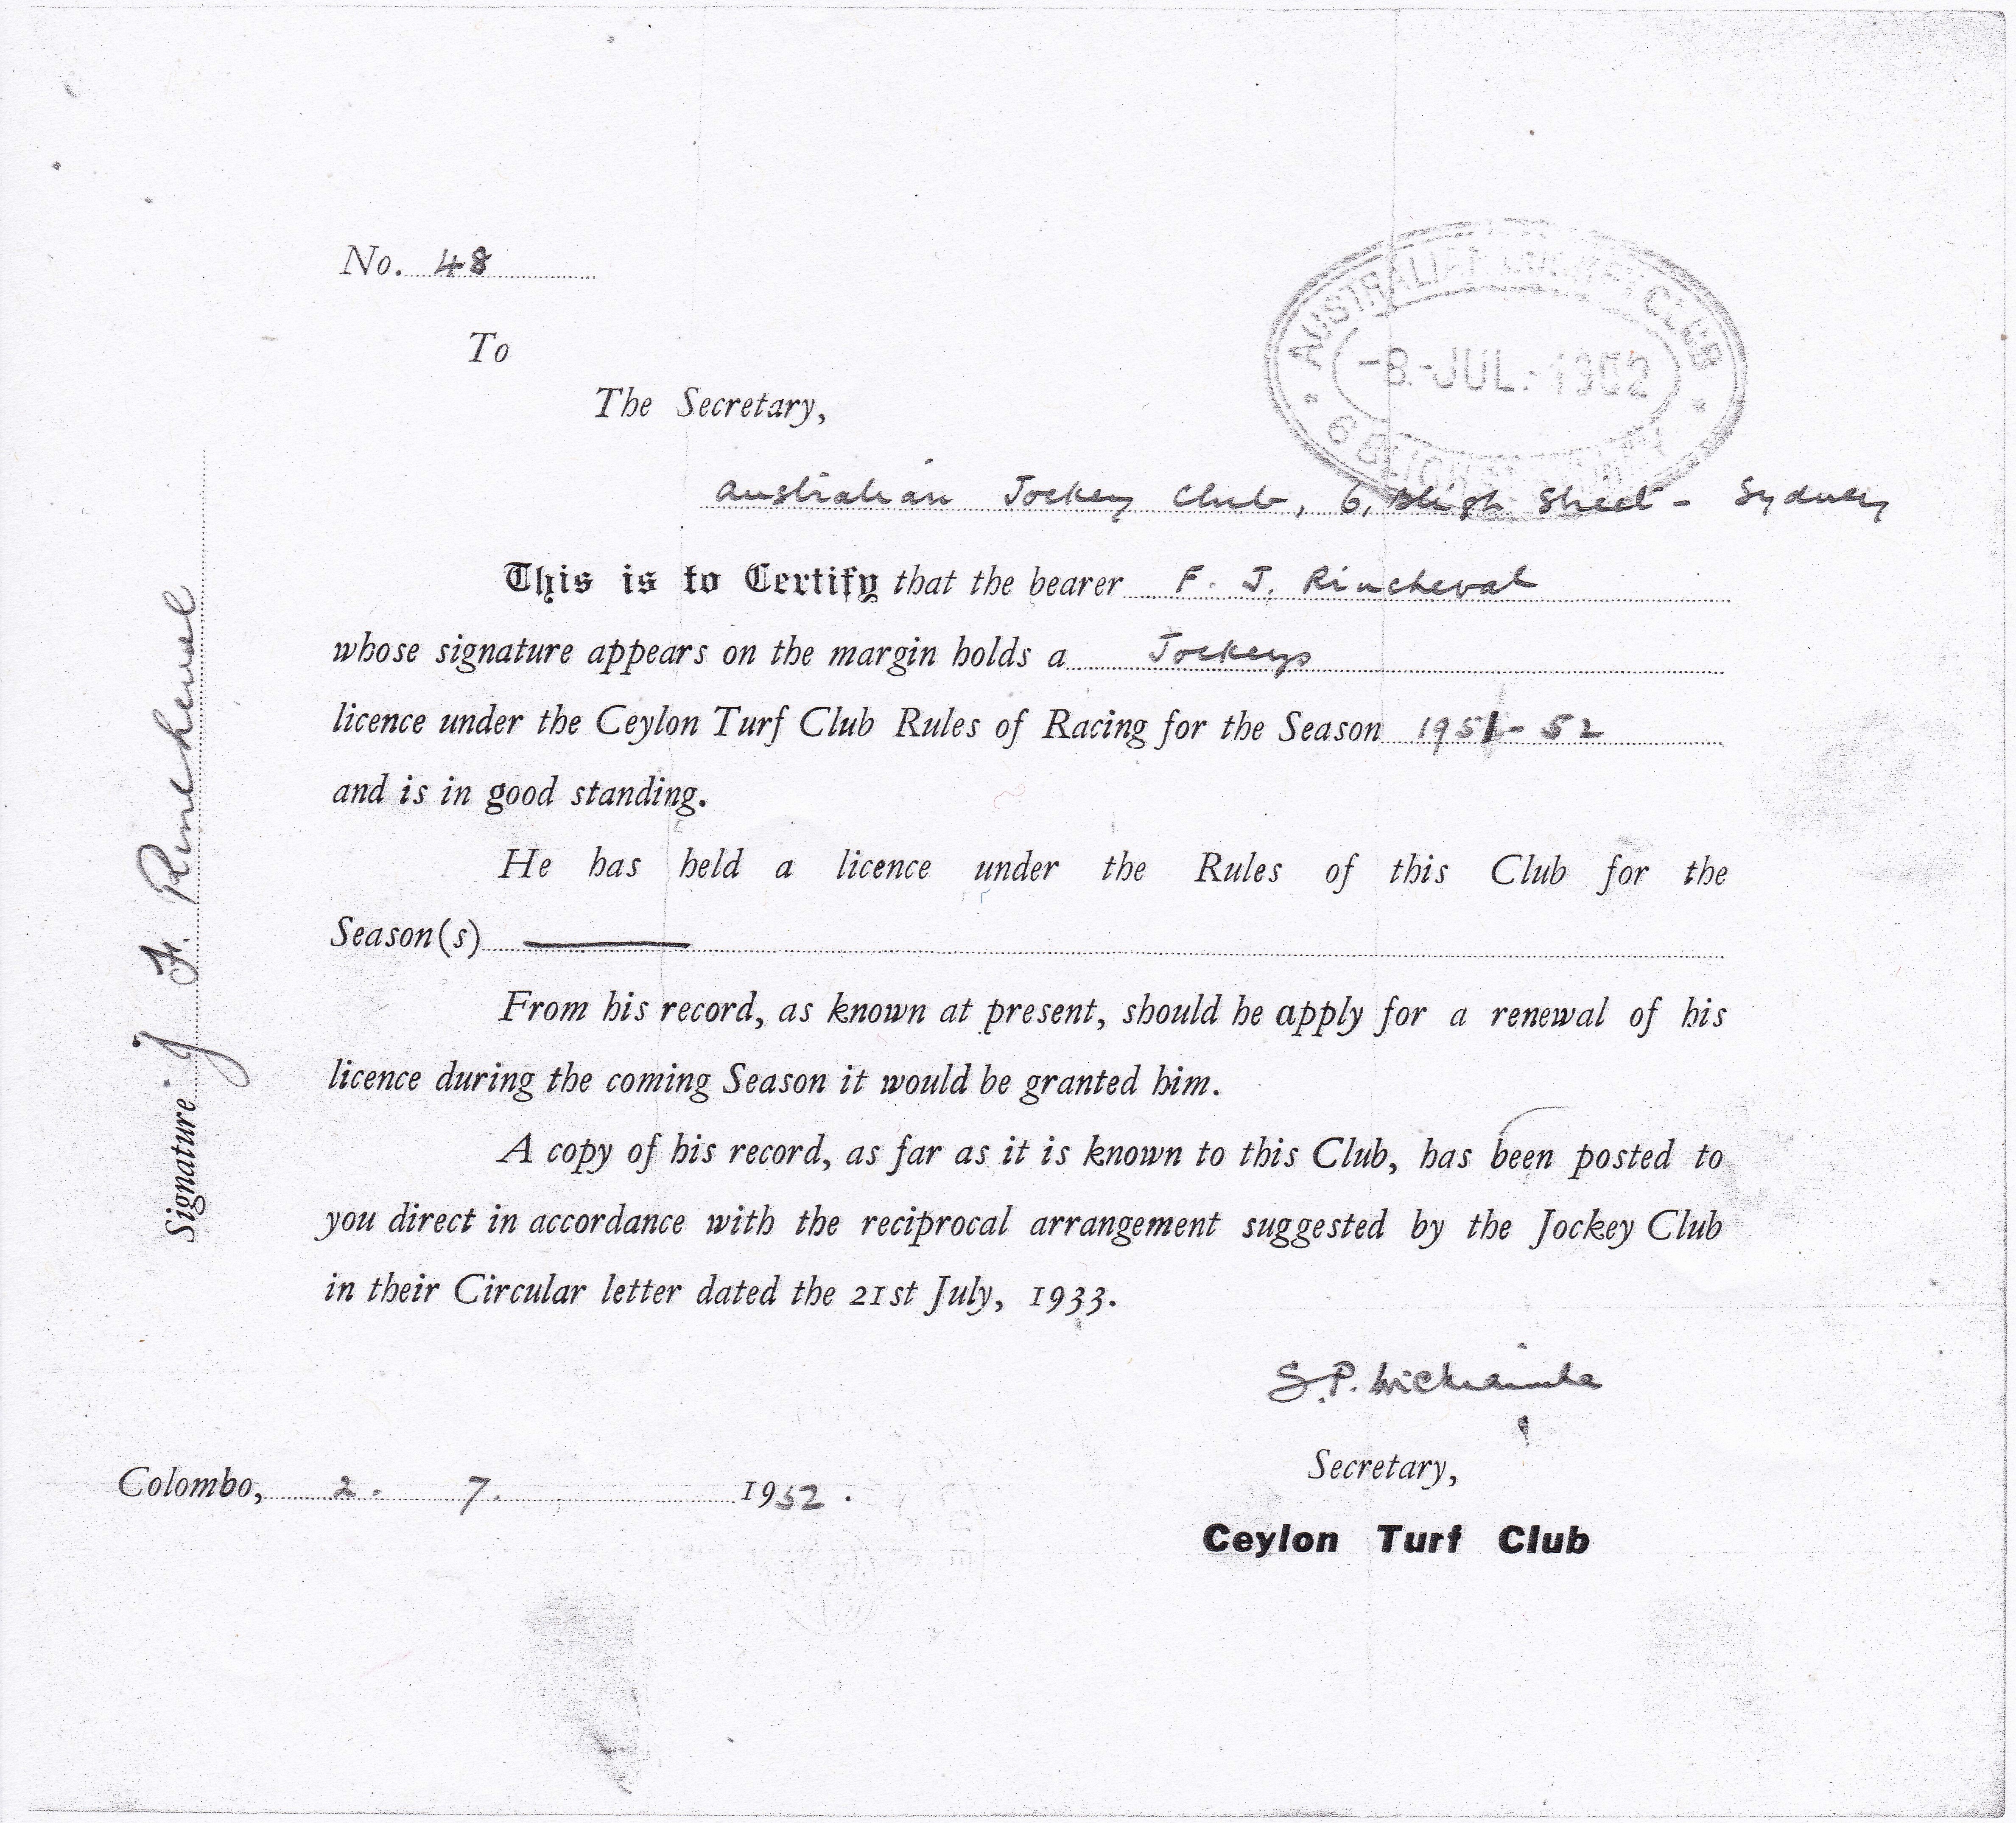 No. 48
To
The Secretary,
AUSTRALIAN JOCKEY CLUB
-8.-JUL.-1952
6 BLIGH ST. SYDNEY
Australian Jockey Club, 6, Bligh Street - Sydney
This is to Certify that the bearer F. J. Rincheval
whose signature appears on the margin holds a Jockeys
licence under the Ceylon Turf Club Rules of Racing for the Season 1951-52
and is in good standing.
He has held a licence under the Rules of this Club for the
Season(s) ——
From his record, as known at present, should he apply for a renewal of his
licence during the coming Season it would be granted him.
A copy of his record, as far as it is known to this Club, has been posted to
you direct in accordance with the reciprocal arrangement suggested by the Jockey Club
in their Circular letter dated the 21st July, 1933.
S.P.
Secretary,
Colombo, 2. 7. 1952.
Ceylon Turf Club
Signature J F. Rincheval